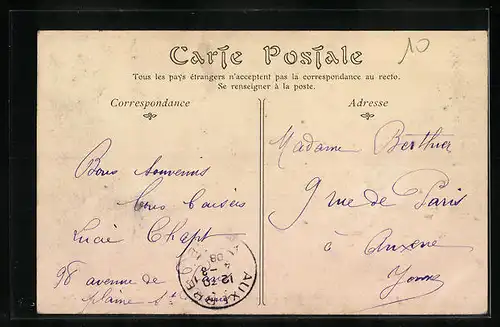 10
Carte Postale
Tous les pays étrangers n'acceptent pas la correspondance au recto.
Se renseigner à la poste.
Correspondance
Adresse
Bons souvenirs
bons baisers
Lucie Chapt
98 avenue de
plaine
Madame Berthier
9 rue de Paris
à Auxerre
Yonne
AUXERRE
12-30
4 -8
08